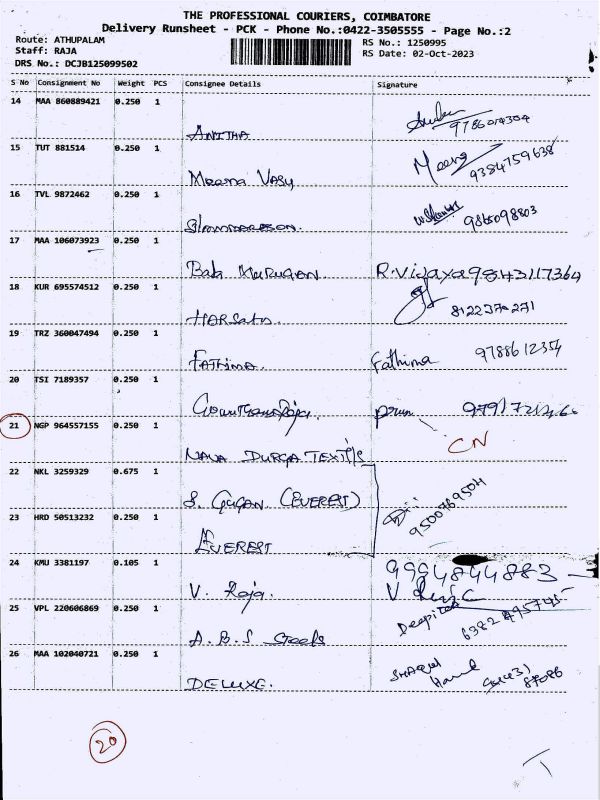 THE PROFESSIONAL COURIERS, COIMBATORE
Delivery Runsheet - PCK - Phone No.:0422-3505555 - Page No.:2
Route: ATHUPALAM
Staff: RAJA
DRS No.: DCJB125099502
RS No.: 1250995
RS Date: 02-Oct-2023
S No Consignment No Weight PCS Consignee Details Signature
14 MAA 860889421 0.250 1
ANITHA 9786014304
15 TUT 881514 0.250 1
Meena Vasu Meena 9384759638
16 TVL 9872462 0.250 1
9865098803
17 MAA 106073923 0.250 1
Bala Murugan R.Vijaya 9843117364
18 KUR 695574512 0.250 1
8122370271
19 TRZ 360047494 0.250 1
FATHIMA. Fathima 9788612354
20 TSI 7189357 0.250 1
21 NGP 964557155 0.250 1
CN
NAVA DURGA TEXTILS
22 NKL 3259329 0.675 1
S. Gugan (EVEREST)
9500769504
23 HRD 50513232 0.250 1
EVEREST
24 KMU 3381197 0.105 1
9994844883
V. Raja.
25 VPL 220606869 0.250 1
Deepika
A.B.S Steels
26 MAA 102040721 0.250 1
DELUXE.
20